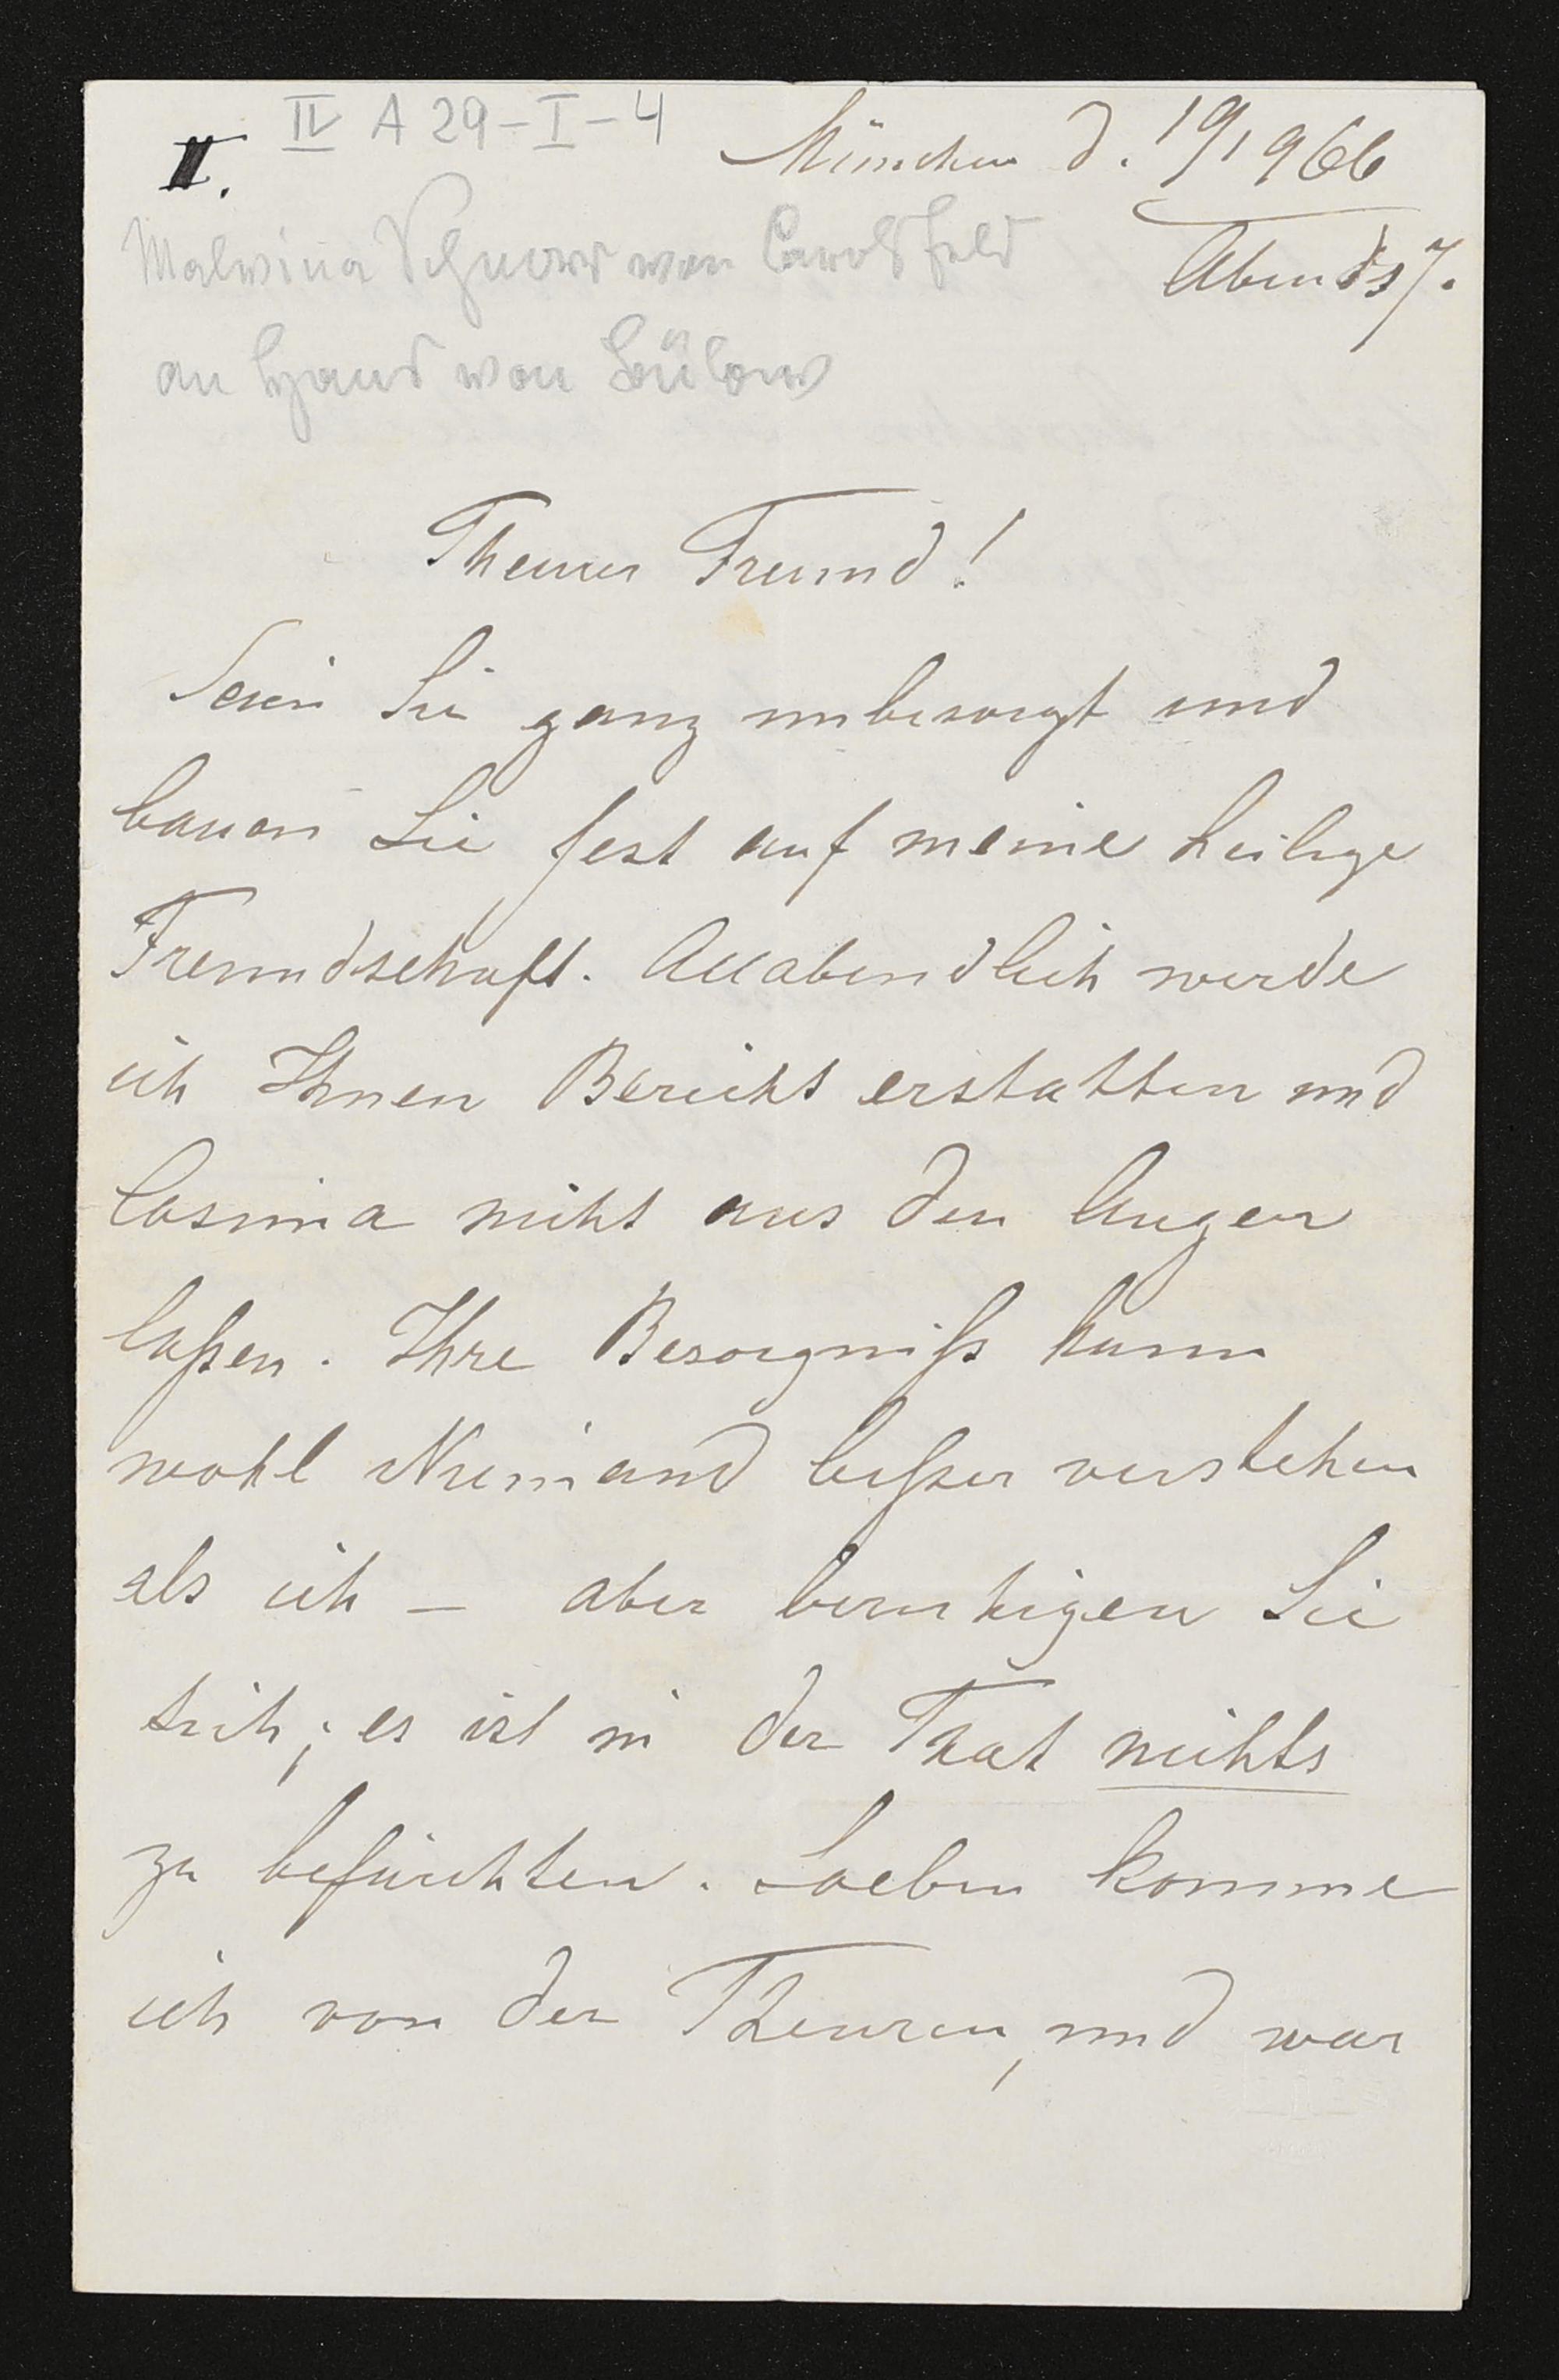 IV A 29-I-4
II.
München d. 19/9 66
Abends 7.
Malvina Schnorr von Carolsfeld
an Hans von Bülow
Theurer Freund!
Seien Sie ganz unbesorgt und
bauen Sie fest auf meine heilige
Freundschaft. Allabendlich werde
ich Ihnen Bericht erstatten und
Cosima nicht aus den Augen
laßen. Ihre Besorgniß kann
wohl Niemand beßer verstehen
als ich – aber beruhigen Sie
sich; es ist in der That nichts
zu befürchten. Soeben komme
ich von der Theuren, und war